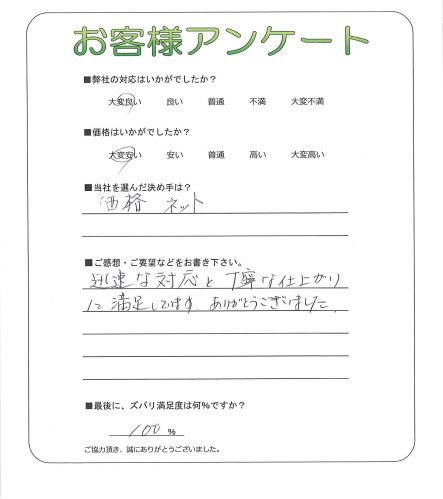 お客様アンケート
■弊社の対応はいかがでしたか?
大変良い 良い 普通 不満 大変不満
■価格はいかがでしたか?
大変安い 安い 普通 高い 大変高い
■当社を選んだ決め手は?
価格 ネット
■ご感想・ご要望などをお書き下さい。
迅速な対応と丁寧な仕上がり
に満足しています。ありがとうございました。
■最後に、ズバリ満足度は何%ですか?
100 %
ご協力頂き、誠にありがとうございました。